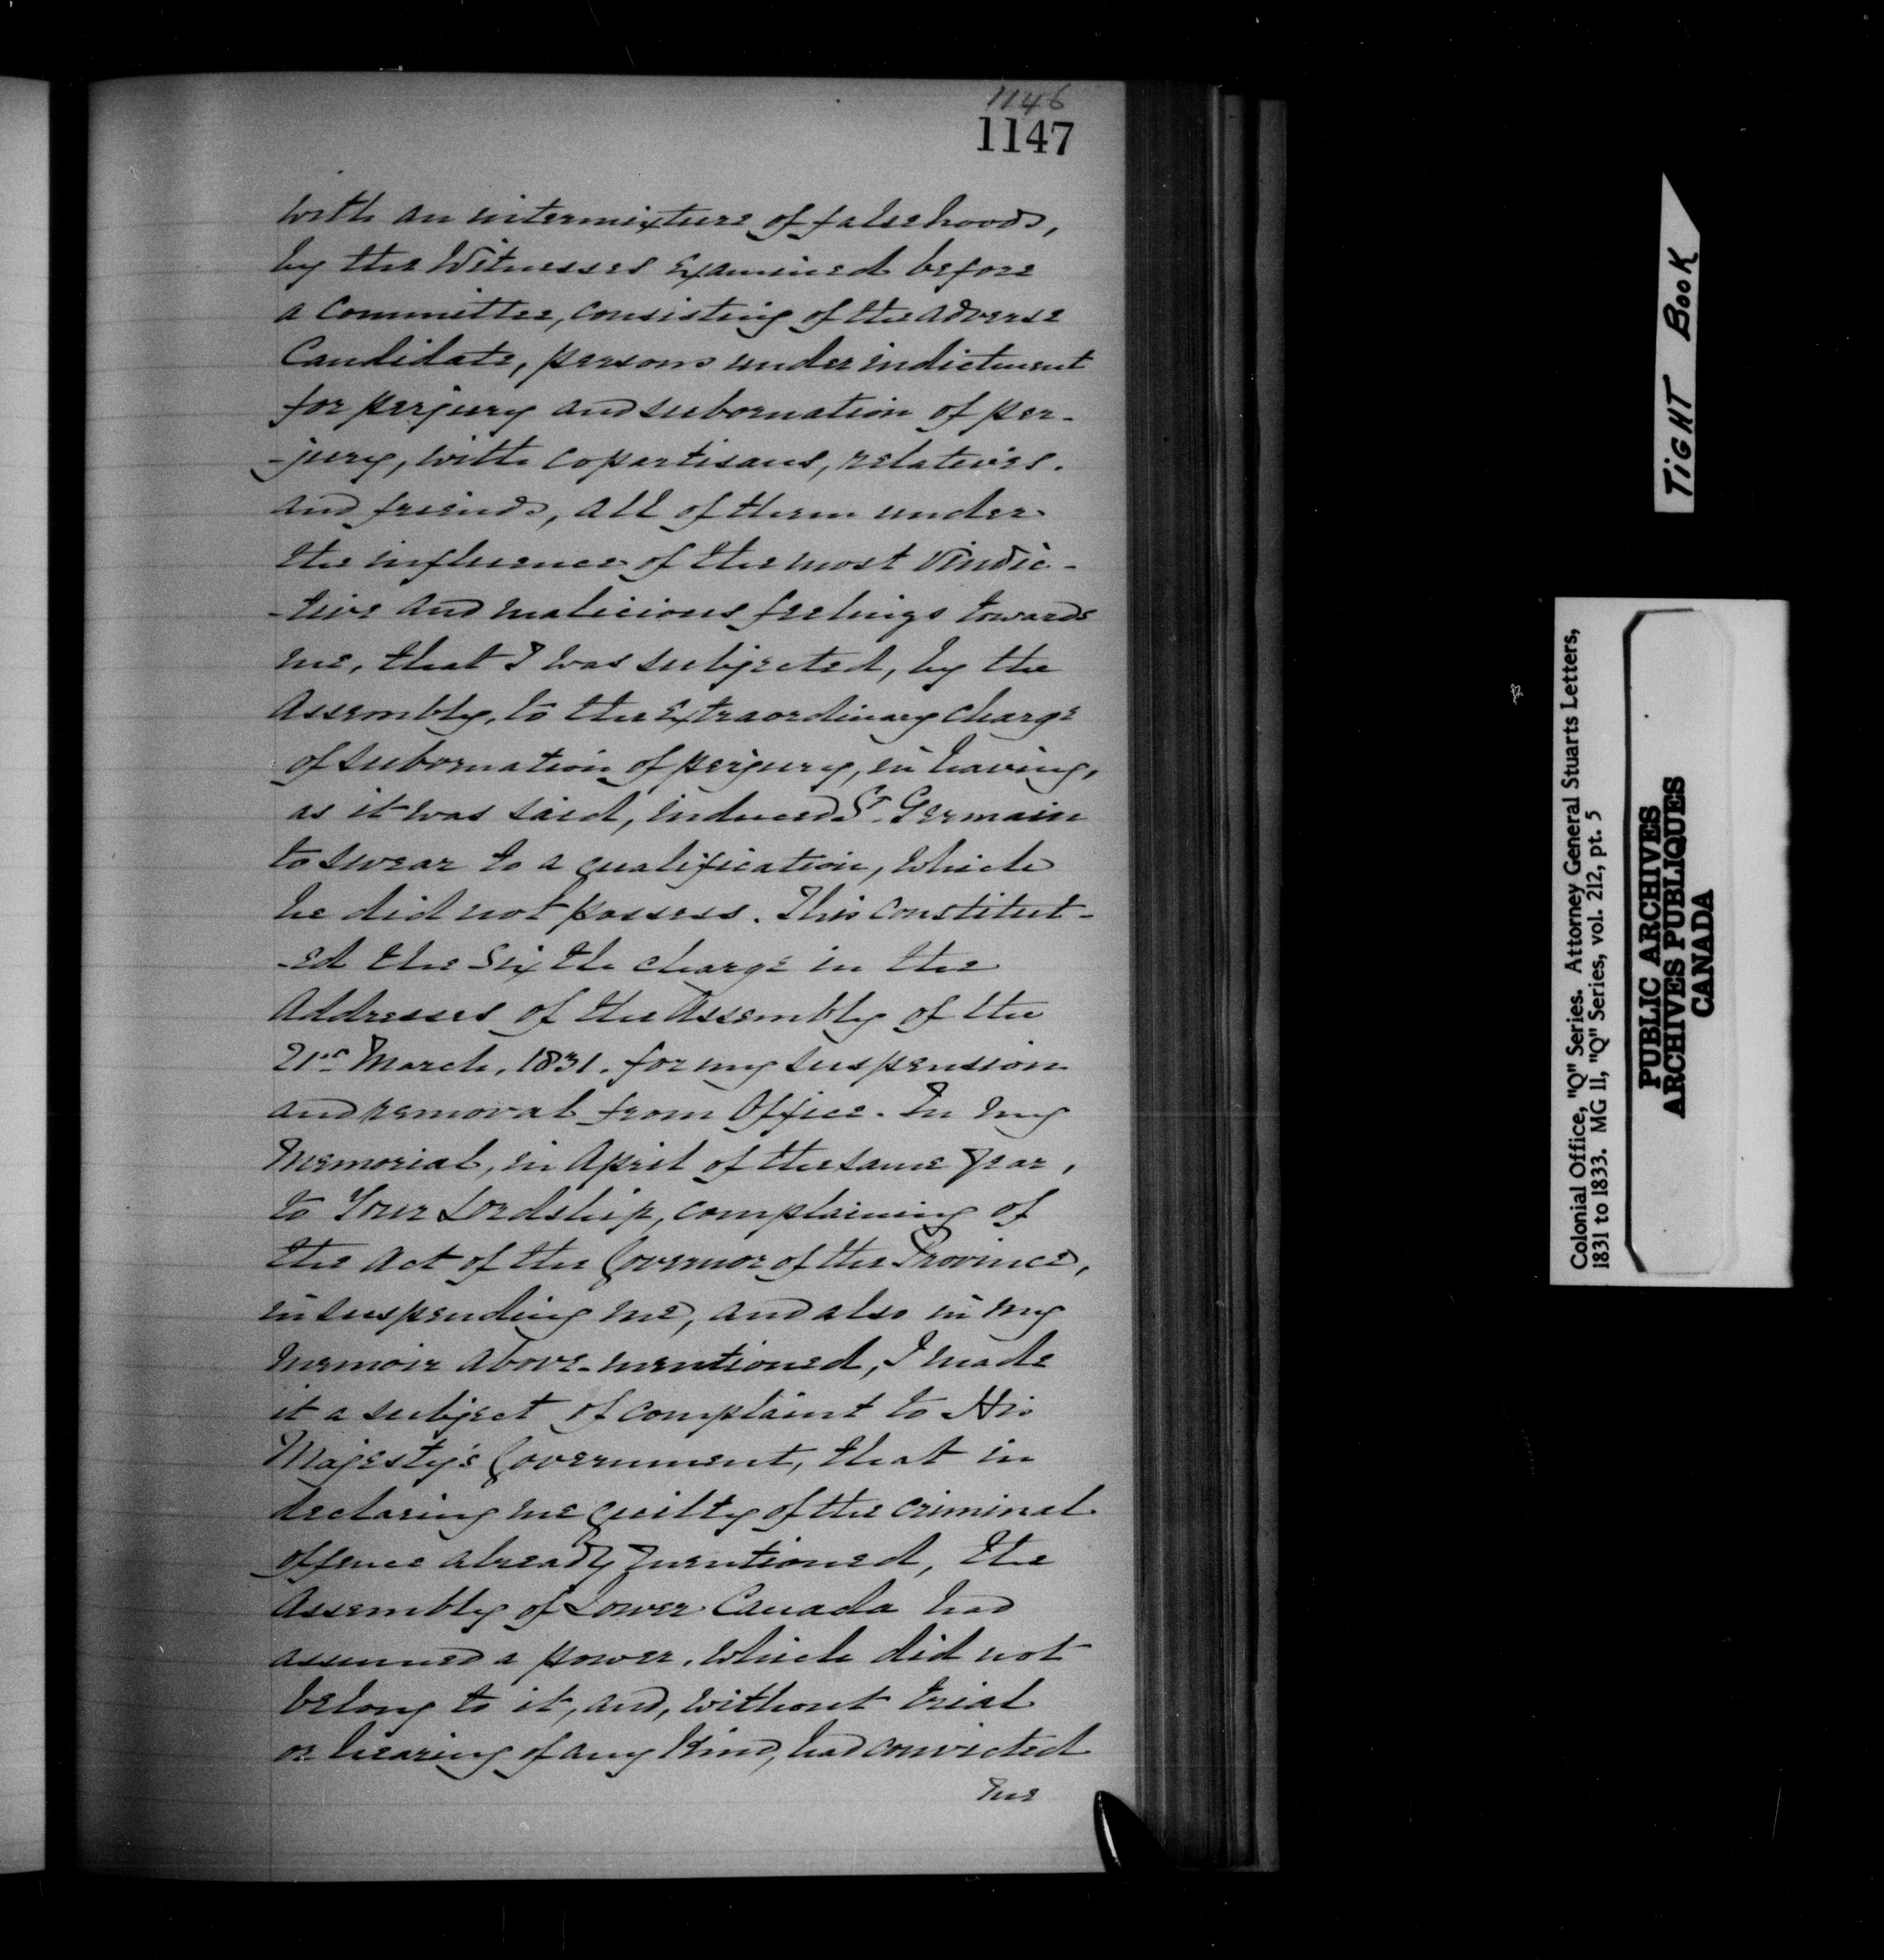 1146
1147
with an intermixture of falsehoods,
by the Witnesses examined before
a Committee, consisting of the adverse
Candidate, persons under indictment
for perjury and subornation of per-
-jury, with copartisans, relatives.
and friends, all of them under
the influence of the most vindic-
-tive and malicious feelings towards
me, that I was subjected, by the
Assembly, to the extraordinary charge
of subornation of perjury, in having,
as it was said, induced St. Germain
to swear to a qualification, which
he did not possess. This constitut-
-ed the sixth charge in the
Addresses of the Assembly of the
21st March, 1831. for my suspension
and removal from Office. In my
Memorial, in April of the same year,
to Your Lordship, complaining of
the act of the Governor of the Province,
in suspending me, and also in my
memoir above-mentioned, I made
it a subject of complaint to His
Majesty's Government, that in
declaring me guilty of the criminal
offence already mentioned, the
Assembly of Lower Canada had
assumed a power, which did not
belong to it, and, without trial
or hearing of any kind, had convicted
me
TIGHT BOOK
Colonial Office, "Q" Series. Attorney General Stuarts Letters,
1831 to 1833. MG 11, "Q" Series, vol. 212, pt. 5
PUBLIC ARCHIVES
ARCHIVES PUBLIQUES
CANADA